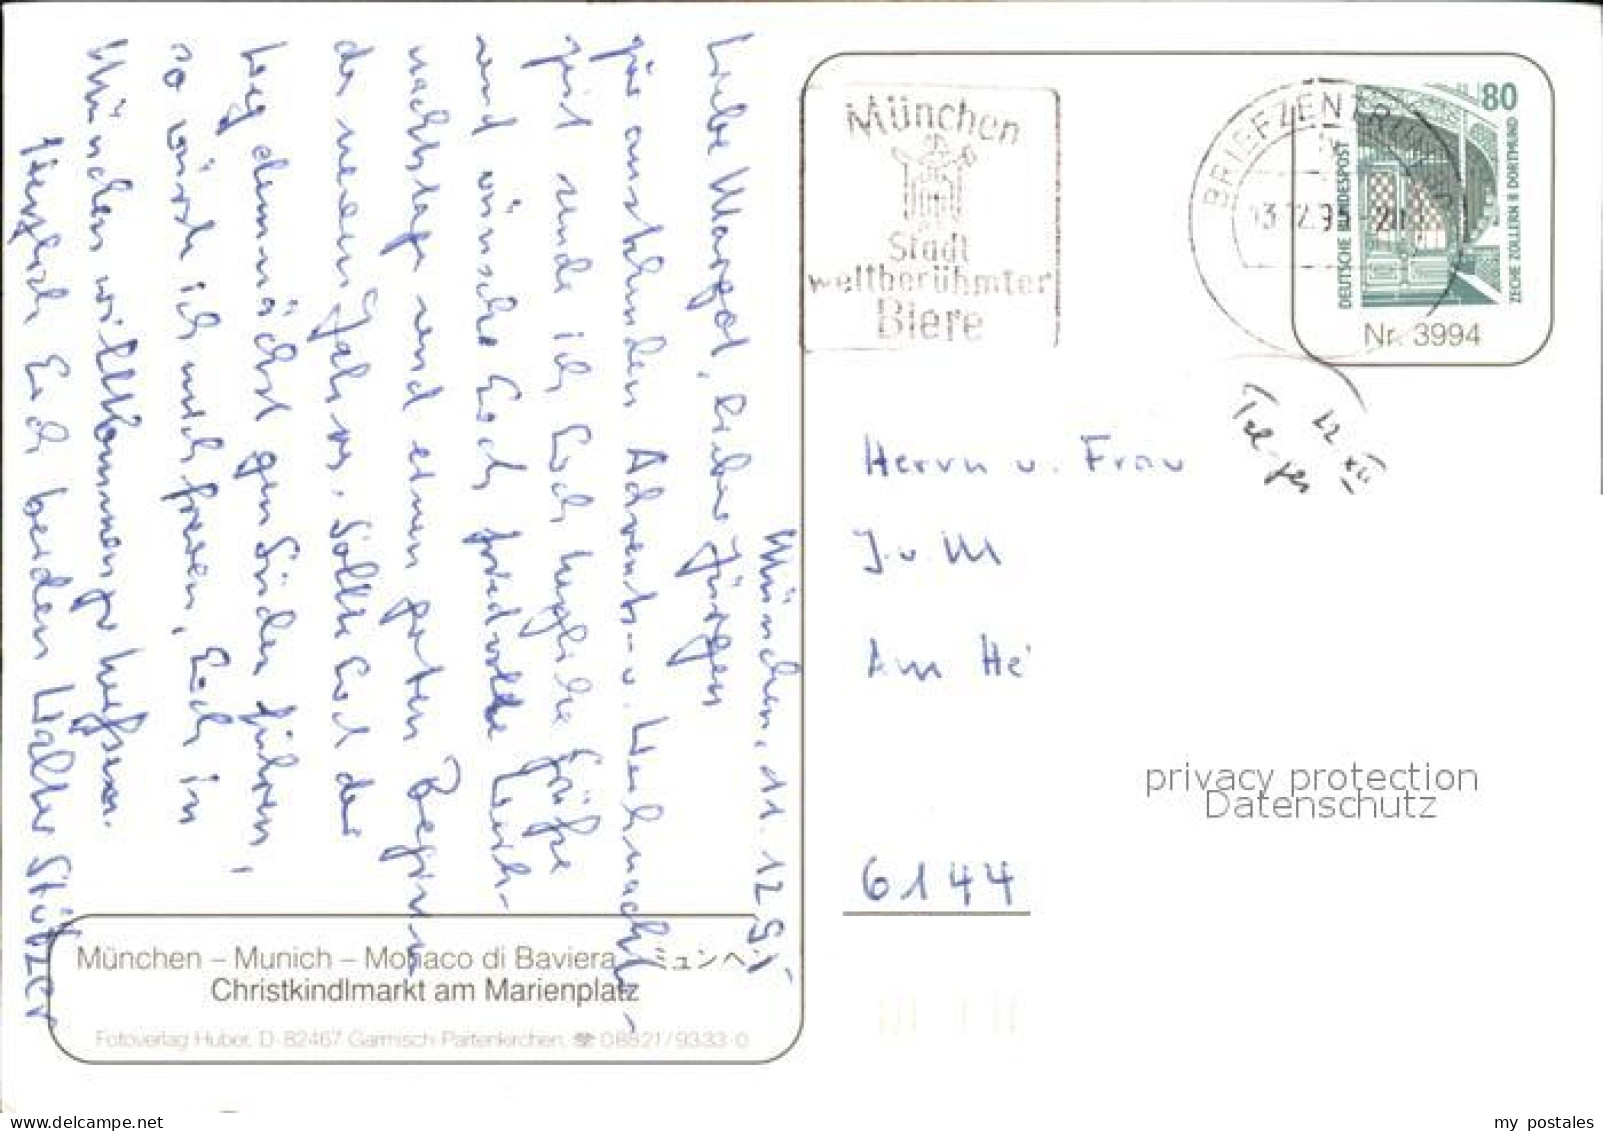 München, 11.12.95
Liebe Margot, lieber Jürgen
für anstehenden Advents- u. Weihnachts-
zeit sende ich Euch herzliche Grüße
und wünsche Euch friedvolle Weih-
nachtstage und einen guten Beginn
des neuen Jahres. Sollte Euch der
Weg demnächst gen Süden führen,
so würde ich mich freuen, Euch in
München willkommen zu heißen.
Herzlich Euch beiden Walter Stützer
München – Munich – Monaco di Baviera ミュンヘン
Christkindlmarkt am Marienplatz
Fotoverlag Huber, D-82467 Garmisch-Partenkirchen, ☎ 08821/9333-0
München
Stadt
weltberühmter
Biere
BRIEFZENTRUM
13.12.95
80
DEUTSCHE BUNDESPOST
ZECHE ZOLLERN II DORTMUND
Nr. 3994
22. XII
Tel.
Herrn u. Frau
J. u. M
Am He
privacy protection
Datenschutz
6144
my postales